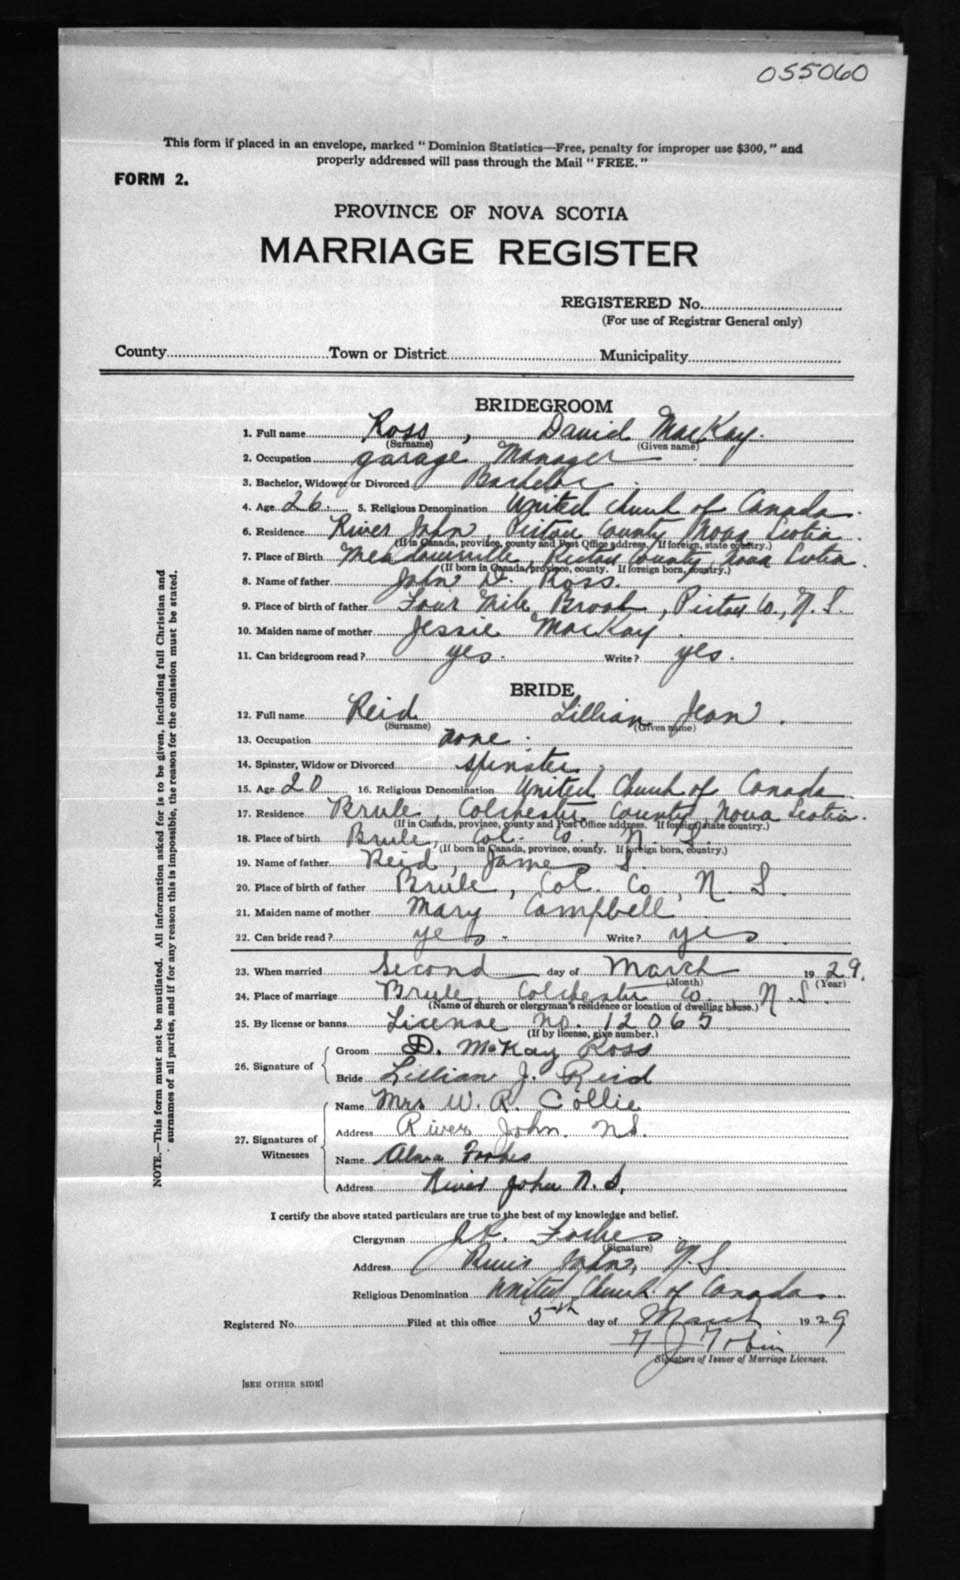 055060
This form if placed in an envelope, marked "Dominion Statistics—Free, penalty for improper use $300," and
properly addressed will pass through the Mail "FREE."
FORM 2.
PROVINCE OF NOVA SCOTIA
MARRIAGE REGISTER
REGISTERED No.
(For use of Registrar General only)
County Town or District Municipality
BRIDEGROOM
1. Full name Ross, David MacKay.
(Surname) (Given name)
2. Occupation garage Manager
3. Bachelor, Widower or Divorced Bachelor
4. Age 26. 5. Religious Denomination United Church of Canada.
6. Residence River John, Pictou County Nova Scotia.
(If in Canada, province, county and Post Office address. If foreign, state country.)
7. Place of Birth Meadowville, Pictou County, Nova Scotia.
(If born in Canada, province, county. If foreign born, country.)
8. Name of father John D. Ross.
9. Place of birth of father Four Mile Brook, Pictou Co., N.S.
10. Maiden name of mother Jessie MacKay.
11. Can bridegroom read? yes. Write? yes.
BRIDE
12. Full name Reid Lillian Jean.
(Surname) (Given name)
13. Occupation none.
14. Spinster, Widow or Divorced spinster.
15. Age 20 16. Religious Denomination United Church of Canada
17. Residence Brule, Colchester County, Nova Scotia.
(If in Canada, province, county and Post Office address. If foreign, state country.)
18. Place of birth Brule, Col. Co. N. S.
(If born in Canada, province, county. If foreign born, country.)
19. Name of father Reid, James S.
20. Place of birth of father Brule, Col. Co., N. S.
21. Maiden name of mother Mary Campbell
22. Can bride read? yes - Write? yes.
23. When married Second day of March 1929.
(Month) (Year)
24. Place of marriage Brule, Colchester Co., N.S.
(Name of church or clergyman's residence or location of dwelling house.)
25. By license or banns License no. 12065
(If by license, give number.)
26. Signature of
Groom D. McKay Ross
Bride Lillian J. Reid
27. Signatures of Witnesses
Name Mrs W. R. Collie
Address River John. N.S.
Name Forbes
Address River John N. S.
I certify the above stated particulars are true to the best of my knowledge and belief.
Clergyman Forbes
(Signature)
Address River John, N.S.
Religious Denomination United Church of Canada.
Registered No. Filed at this office 5th day of March 1929
J Tobin
Signature of Issuer of Marriage Licenses.
[SEE OTHER SIDE]
NOTE.—This form must not be mutilated. All information asked for is to be given, including full Christian and
surnames of all parties, and if for any reason this is impossible, the reason for the omission must be stated.